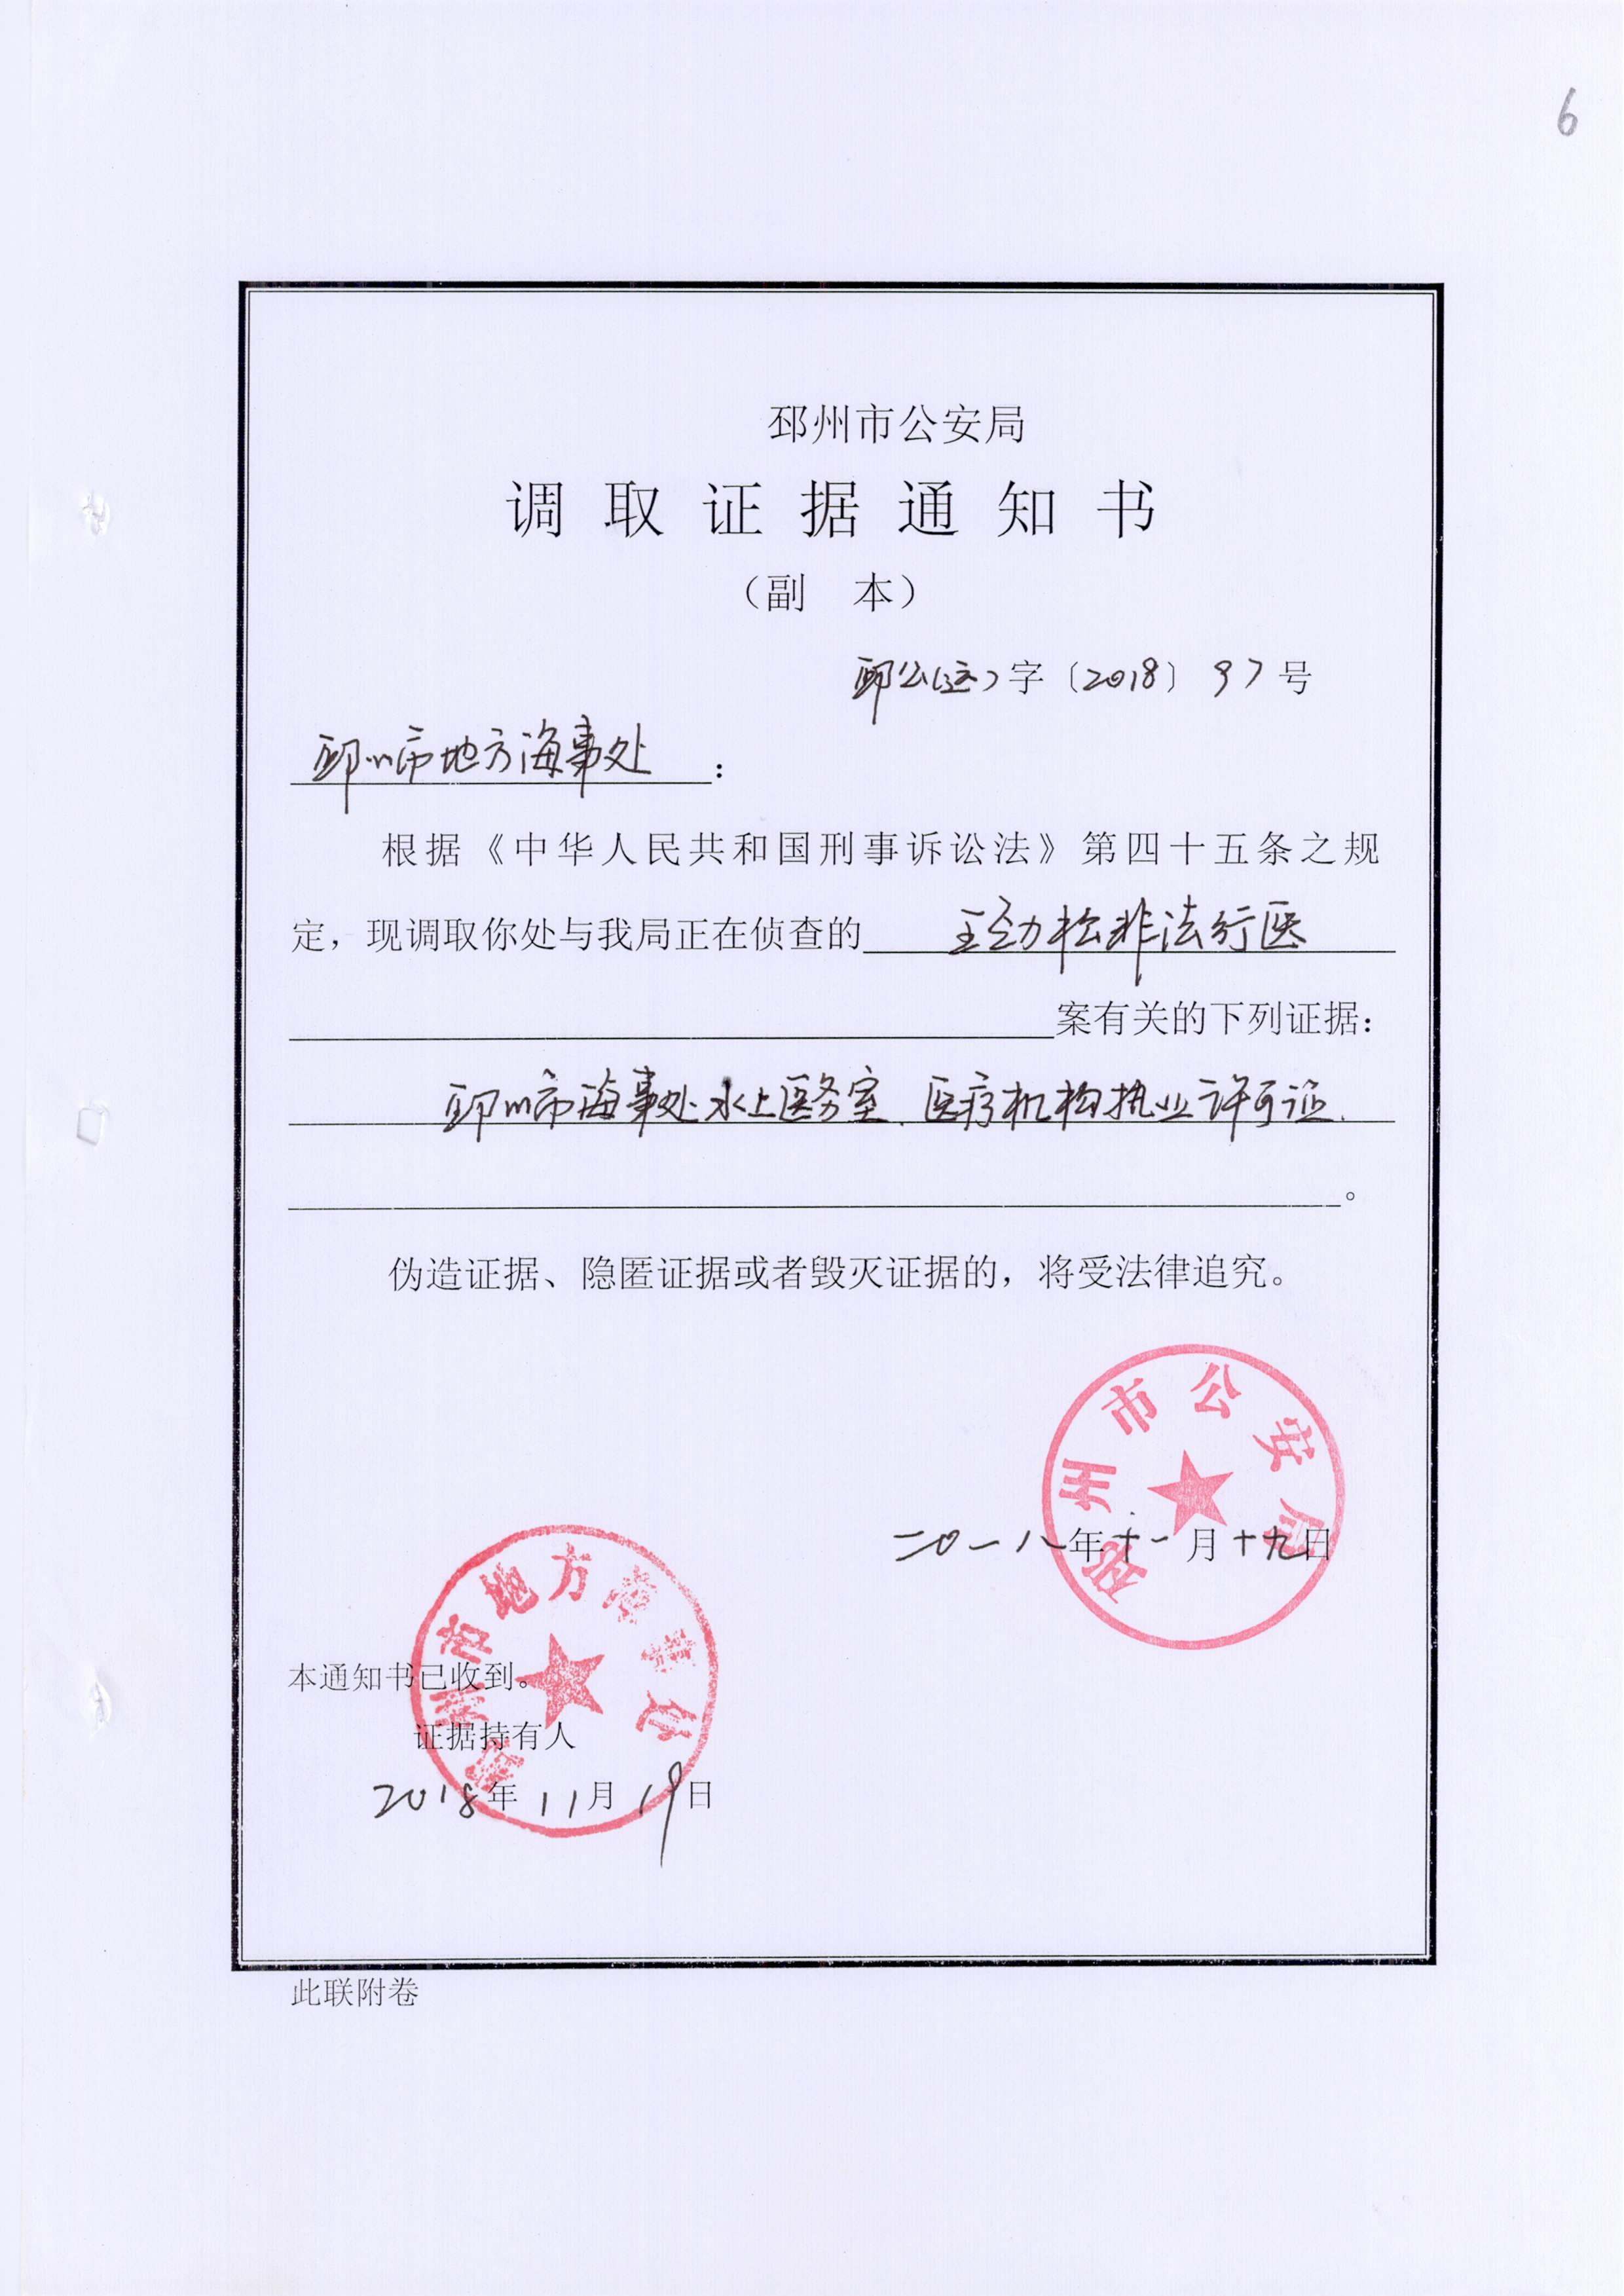 6
邳州市公安局
调取证据通知书
（副 本）
邳公（运）字〔2018〕97号
邳州市地方海事处：
根据《中华人民共和国刑事诉讼法》第四十五条之规
定，现调取你处与我局正在侦查的王劲松非法行医
案有关的下列证据：
邳州市海事处水上医务室、医疗机构执业许可证、
。
伪造证据、隐匿证据或者毁灭证据的，将受法律追究。
邳州市公安局
二〇一八年十一月十九日
邳州市地方海事处
本通知书已收到。
证据持有人
2018年11月19日
此联附卷